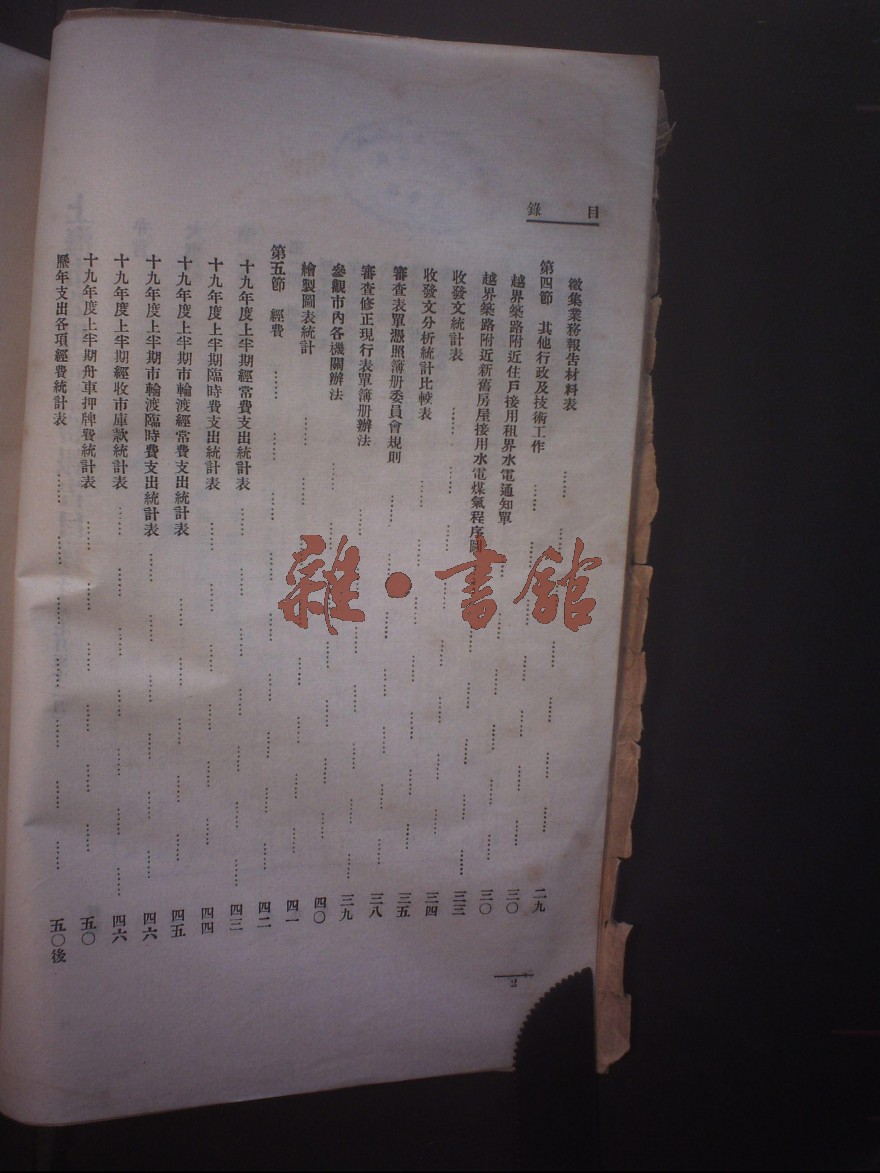 目錄
徵集業務報告材料表 …… 二九
第四節 其他行政及技術工作 …… 三〇
越界築路附近住戶接用租界水電通知單 …… 三〇
越界築路附近新舊房屋接用水電煤氣程序圖 …… 三三
收發文統計表 …… 三四
收發文分析統計比較表 …… 三五
審查表單憑照簿册委員會規則 …… 三八
審查修正現行表單簿册辦法 …… 三九
參觀市內各機關辦法 …… 四〇
繪製圖表統計 …… 四一
第五節 經費 …… 四二
十九年度上半期經常費支出統計表 …… 四三
十九年度上半期臨時費支出統計表 …… 四四
十九年度上半期市輪渡經常費支出統計表 …… 四五
十九年度上半期市輪渡臨時費支出統計表 …… 四六
十九年度上半期經收市庫款統計表 …… 四六
十九年度上半期舟車押牌費統計表 …… 五〇
歷年支出各項經費統計表 …… 五〇後
2
雜·書館